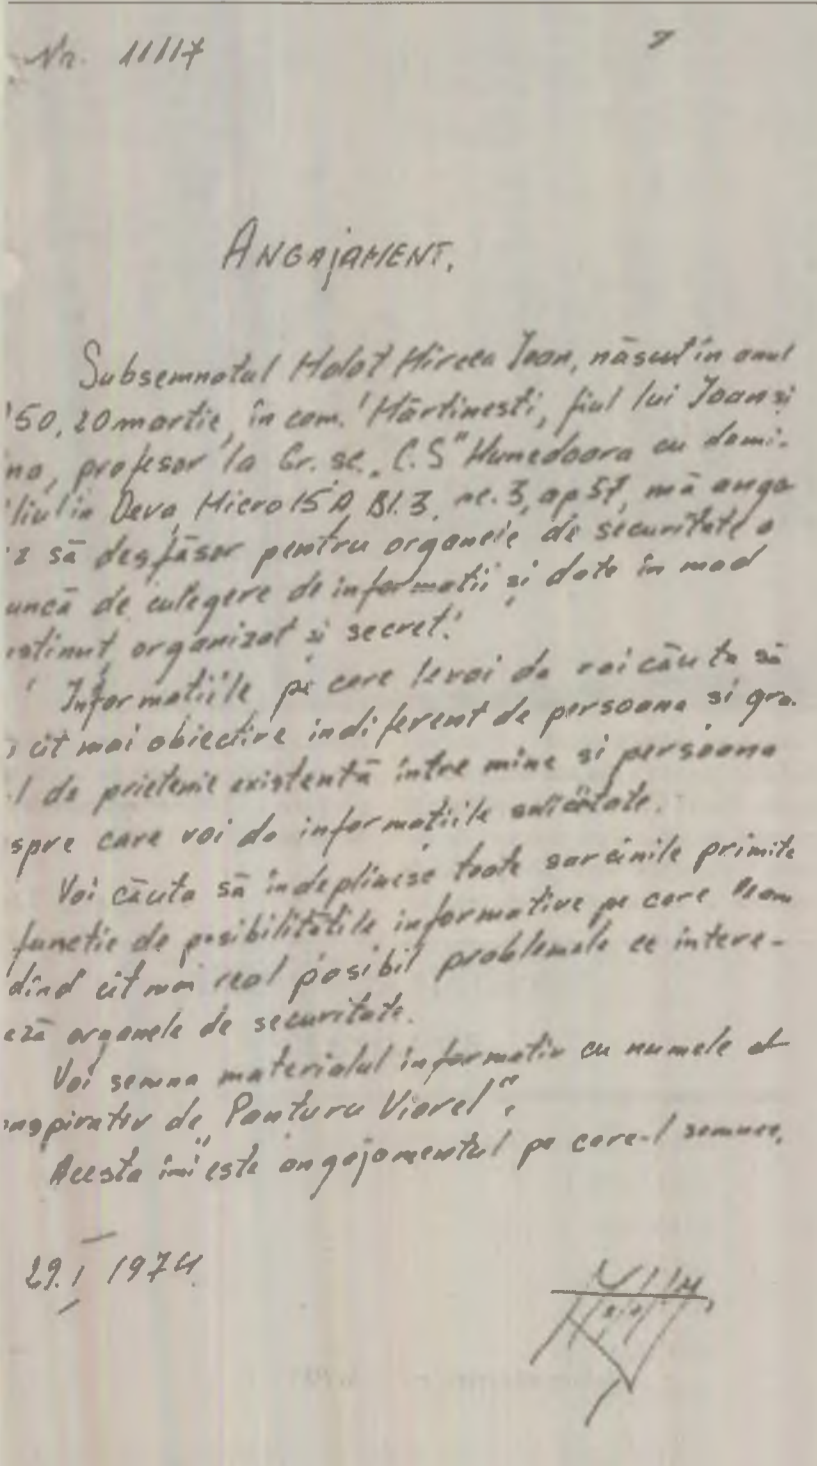 Nr. 11117
7
ANGAJAMENT.
Subsemnatul Molot Mircea Ioan, născut în anul
'50, 20 martie, în com. Mărtinești, fiul lui Ioan și
na, profesor la Gr. sc. „C.S" Hunedoara cu domi-
liu în Deva, Micro 15 A, Bl. 3, nr. 3, ap 57, mă anga
z să desfăsor pentru organele de securitate o
uncă de culegere de informatii și date în mod
stinut, organizat si secret.
Informatiile pe care le voi da voi căuta să
cît mai obiective indiferent de persoana si gra-
l de prietenie existentă între mine si persoana
spre care voi da informatiile solicitate.
Voi căuta să îndeplinesc toate sarcinile primite
functie de posibilitătile informative pe care le am
dînd cît mai real posibil problemele ce intere-
ează organele de securitate.
Voi semna materialul informativ cu numele
nspirativ de „Panturu Viorel".
Acesta îmi este angajamentul pe care-l semnez.
29. I 1974